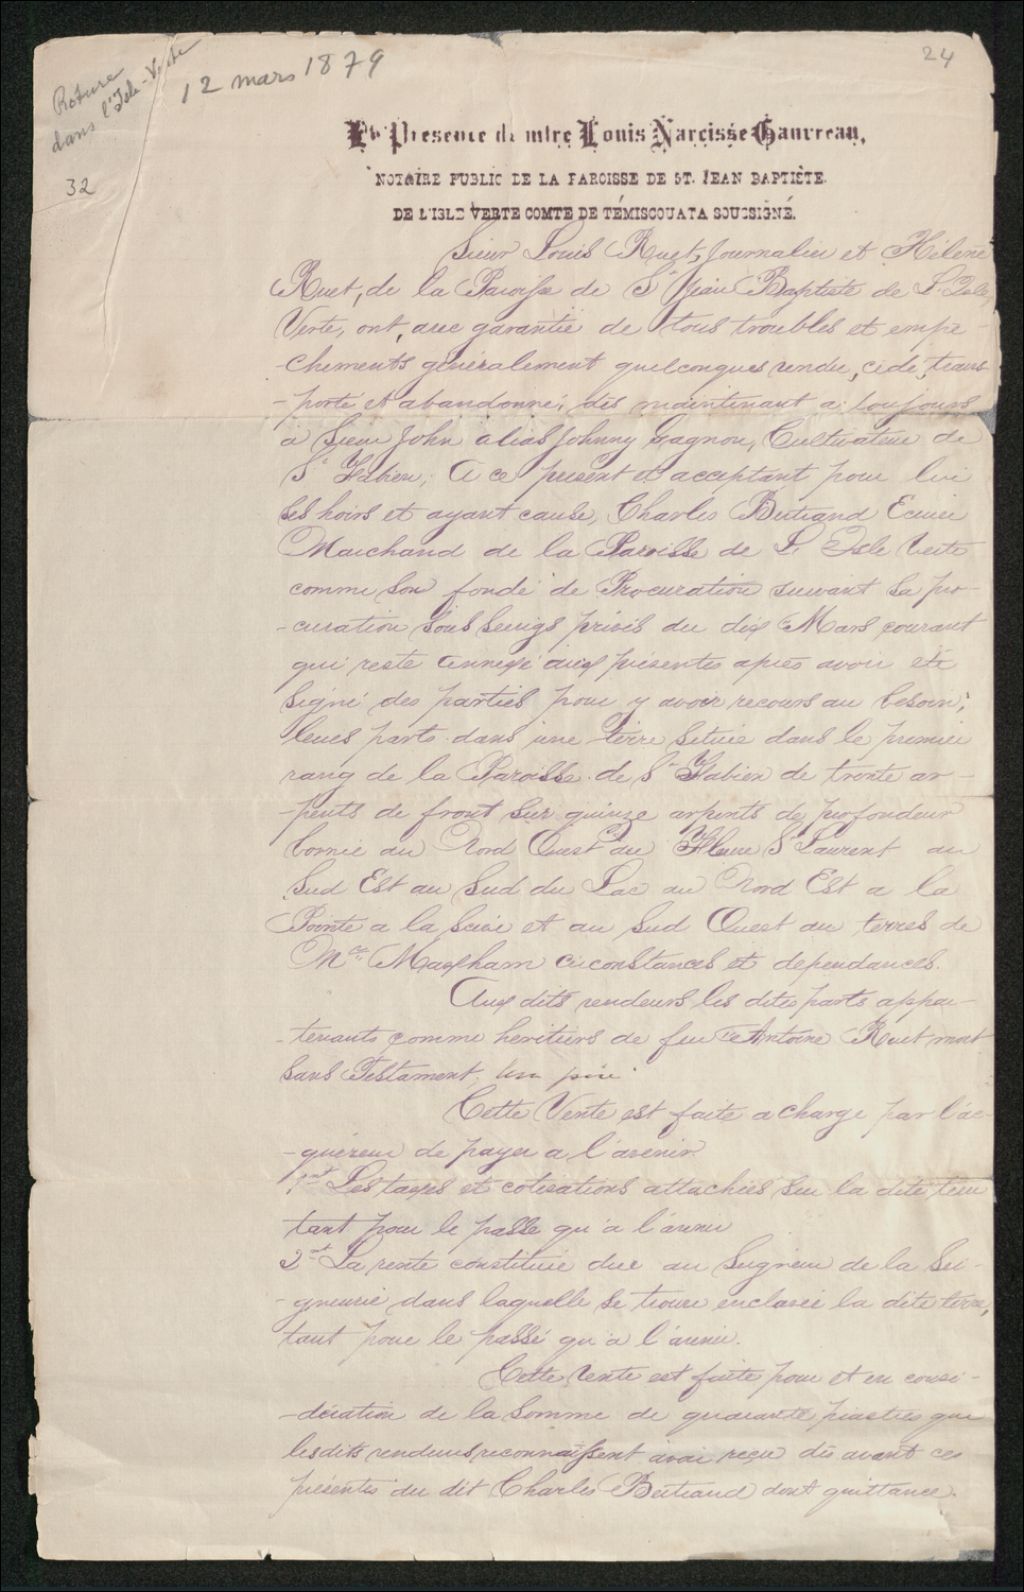 Roture
dans l'Isle-Verte
32
12 mars 1879
24
En Presence de mtre Louis Narcisse Gauvreau,
NOTAIRE PUBLIC DE LA PAROISSE DE ST. JEAN BAPTISTE
DE L'ISLE VERTE COMTE DE TÉMISCOUATA SOUSSIGNÉ.
Sieur Louis Ruet, Journalier et Hélène
Ruet, de la Paroisse de St Jean Baptiste de L'Isle
Verte, ont, avec garantie de tous troubles et empê-
-chements généralement quelconques vendu, cédé, trans-
-porté et abandonné, dès maintenant a toujours
a Sieur John alias Johnny Gagnon, Cultivateur de
St Fabien, A ce present et acceptant pour lui
ses hoirs et ayant cause, Charles Bertrand Ecuier
Marchand de la Paroisse de L'Isle Verte
comme son fondé de Procuration suivant sa pro-
-curation sous seings privés du dix Mars courant
qui reste annexé aux présentes après avoir été
signé des parties pour y avoir recours au besoin;
leurs parts dans une terre située dans le premier
rang de la Paroisse de St Fabien de trente ar-
-pents de front sur quinze arpents de profondeur
bornée au Nord Ouest au Fleuve St Laurent au
Sud Est au Sud du Lac au Nord Est a la
Pointe a la et au Sud Ouest au terres de
Mr Maxham circonstances et dependances.
Aux dits vendeurs les dites parts appar-
-tenants comme heritiers de feu Antoine Ruet mort
sans Testament, leur père.
Cette Vente est faite a charge par l'ac-
-quéreur de payer a l'avenir
1nt Les taxes et cotisations attachées sur la dite terre
tant pour le passé qu'a l'avenir
2nt La rente constituée due au Seigneur de la Sei-
-gneurie dans laquelle se trouve enclavée la dite terre,
tant pour le passé qu'a l'avenir.
Cette Vente est faite pour et en consi-
-dération de la somme de quarante piastres que
lesdits vendeurs reconnaissent avoir reçu dès avant ces
présentes du dit Charles Bertrand dont quittance.